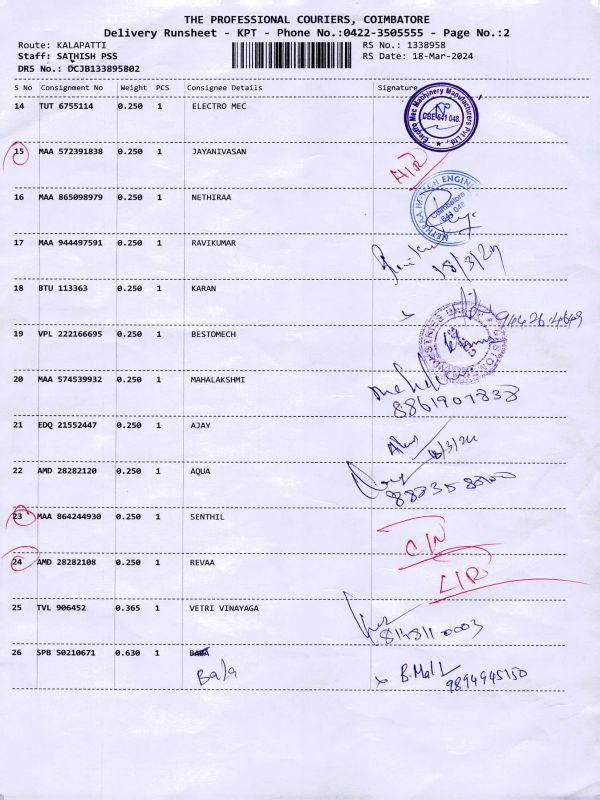 THE PROFESSIONAL COURIERS, COIMBATORE
Delivery Runsheet - KPT - Phone No.:0422-3505555 - Page No.:2
Route: KALAPATTI RS No.: 1338958
Staff: SATHISH PSS RS Date: 18-Mar-2024
DRS No.: DCJB133895802
S No Consignment No Weight PCS Consignee Details Signature
14 TUT 6755114 0.250 1 ELECTRO MEC
Electro Mec Machinery Manufacturers Pvt Ltd. CBE-641 048.
15 MAA 572391838 0.250 1 JAYANIVASAN
16 MAA 865098979 0.250 1 NETHIRAA
Coimbatore 641 048
17 MAA 944497591 0.250 1 RAVIKUMAR
18/3/24
18 BTU 113363 0.250 1 KARAN
19 VPL 222166695 0.250 1 BESTOMECH
20 MAA 574539932 0.250 1 MAHALAKSHMI
21 EDQ 21552447 0.250 1 AJAY
18/3/24
22 AMD 28282120 0.250 1 AQUA
23 MAA 864244930 0.250 1 SENTHIL
C/N
24 AMD 28282108 0.250 1 REVAA
25 TVL 906452 0.365 1 VETRI VINAYAGA
26 SPB 50210671 0.630 1 BABA
Bala
9894945150